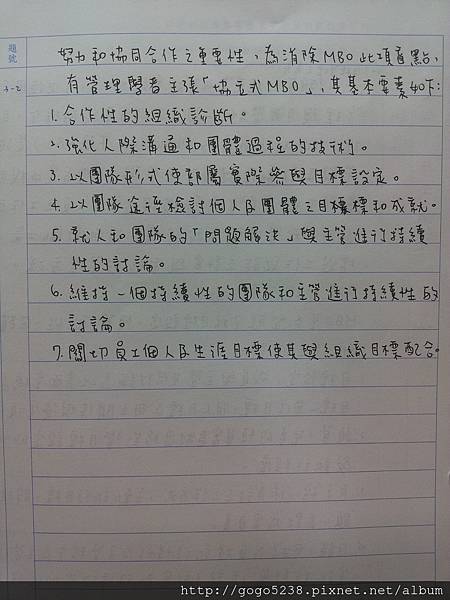 題號
3-2
努力和協同合作之重要性,為消除MBO此項盲點,
有管理學者主張「協立式MBO」,其基本要素如下:
1.合作性的組織診斷。
2.強化人際溝通和團體過程的技術。
3.以團隊形式使部屬實際參與目標設定。
4.以團隊途徑檢討個人及團體之目標和成就。
5.就人和團隊的「問題解決」與主管進行持續
性的討論。
6.維持一個持續性的團隊和主管進行持續性的
討論。
7.關切員工個人及生涯目標使其與組織目標配合。
http://gogo5238.pixnet.net/album